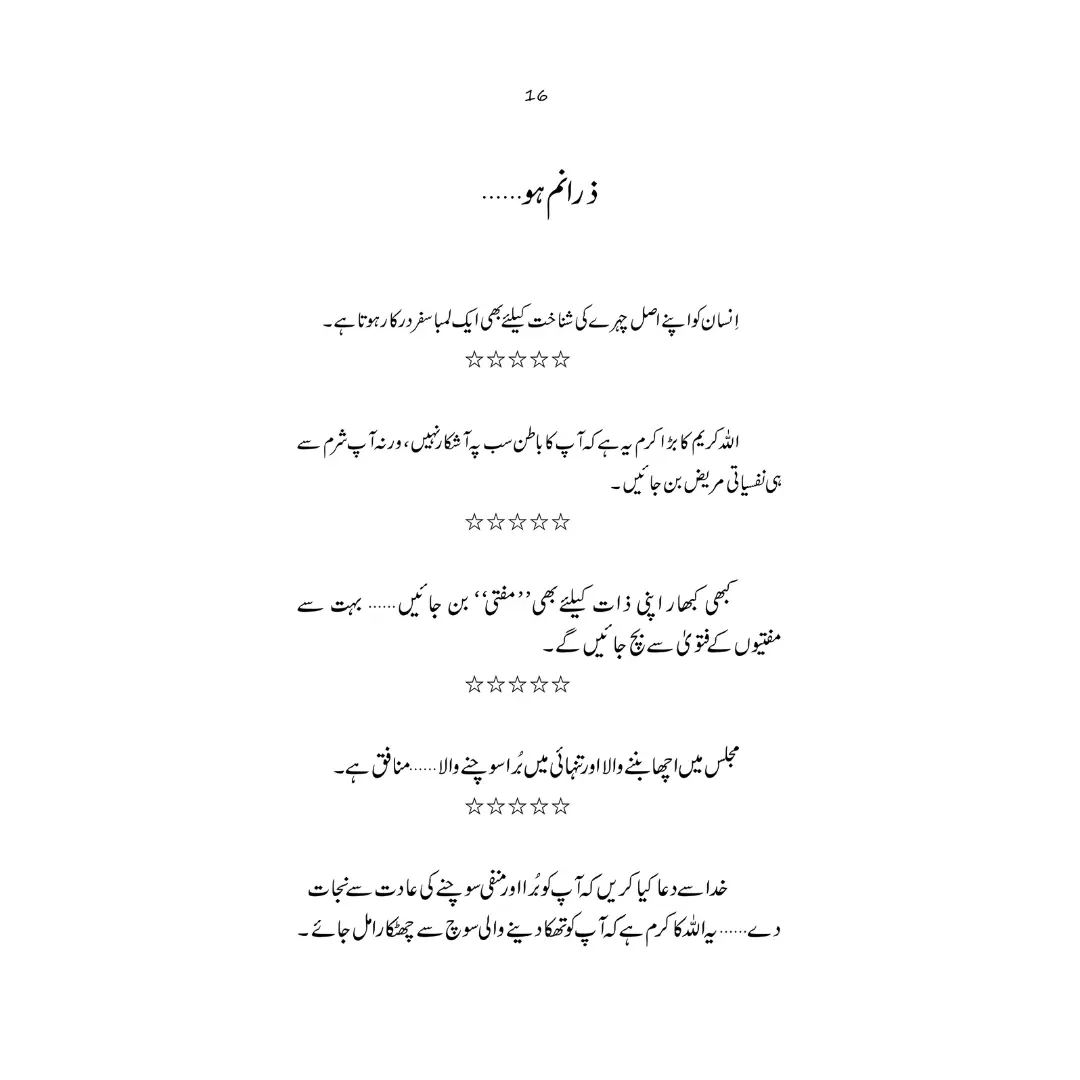 16
ذرا نم ہو......
اِنسان کو اپنے اصل چہرے کی شناخت کیلئے بھی ایک لمبا سفر درکار ہوتا ہے۔
☆☆☆☆☆
اللہ کریم کا بڑا کرم یہ ہے کہ آپ کا باطن سب پہ آشکار نہیں، ورنہ آپ شرم سے
ہی نفسیاتی مریض بن جائیں۔
☆☆☆☆☆
کبھی کبھار اپنی ذات کیلئے بھی ’’مفتی‘‘ بن جائیں...... بہت سے
مفتیوں کے فتویٰ سے بچ جائیں گے۔
☆☆☆☆☆
مجلس میں اچھا بننے والا اور تنہائی میں بُرا سوچنے والا......منافق ہے۔
☆☆☆☆☆
خدا سے دعا کیا کریں کہ آپ کو بُرا اور منفی سوچنے کی عادت سے نجات
دے...... یہ اللہ کا کرم ہے کہ آپ کو تھکا دینے والی سوچ سے چھٹکارا مل جائے۔